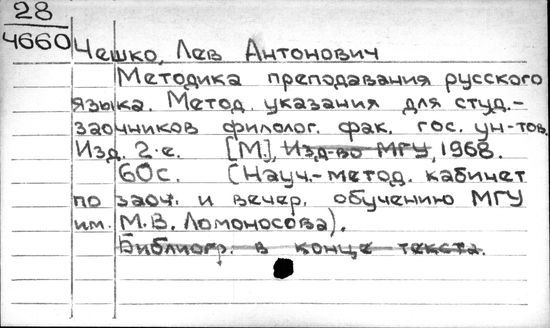 28
4660
Чешко, Лев Антонович
Методика преподавания русского
языка. Метод. указания для студ.-
заочников филолог. фак. гос. ун-тов.
Изд. 2-е. [М.], Изд-во МГУ, 1968.
60с. (Науч.-метод. кабинет
по заоч. и вечер. обучению МГУ
им. М.В. Ломоносова).
Библиогр. в конце текста.